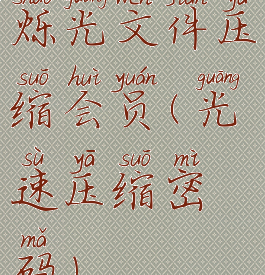 shuò guāng wén jiàn yā
烁光文件压
suō huì yuán guāng
缩会员(光
sù yā suō mì
速压缩密
mǎ
码)